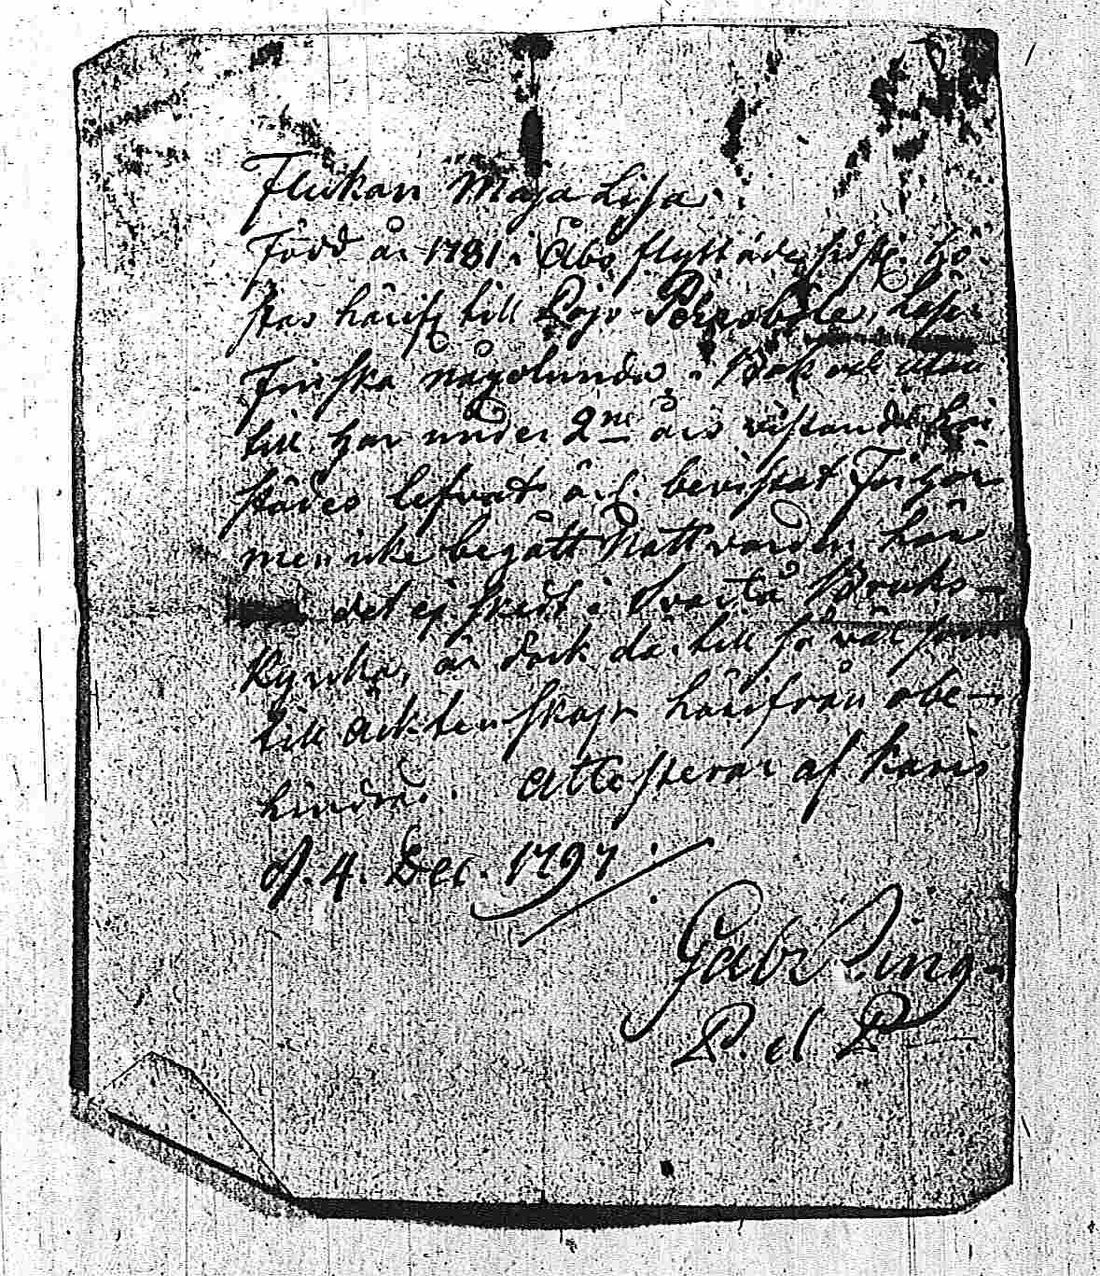 Flickan Maja Lisa.
Född år 1781 i Åbo flyttade sidste Hö-
stas härifr till Lojo läser
Finska någolunda i Bok och utan
till har under 2ne års vistande här
städes lefvat ä. bevistat Förhör
men icke begått Nattvarden här
det ej skedt i Svartå Bruks
Kyrka, är dock där till så väl som
till äcktenskap härifrån obe-
hindrad. Attesterar af Karis
d. 4. Dec. 1797.
Gabr Ring
P. et P